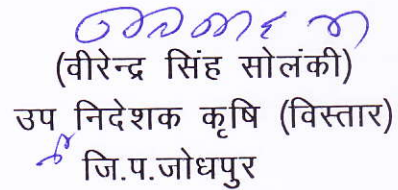 (वीरेन्द्र सिंह सोलंकी)
उप निदेशक कृषि (विस्तार)
जि.प.जोधपुर